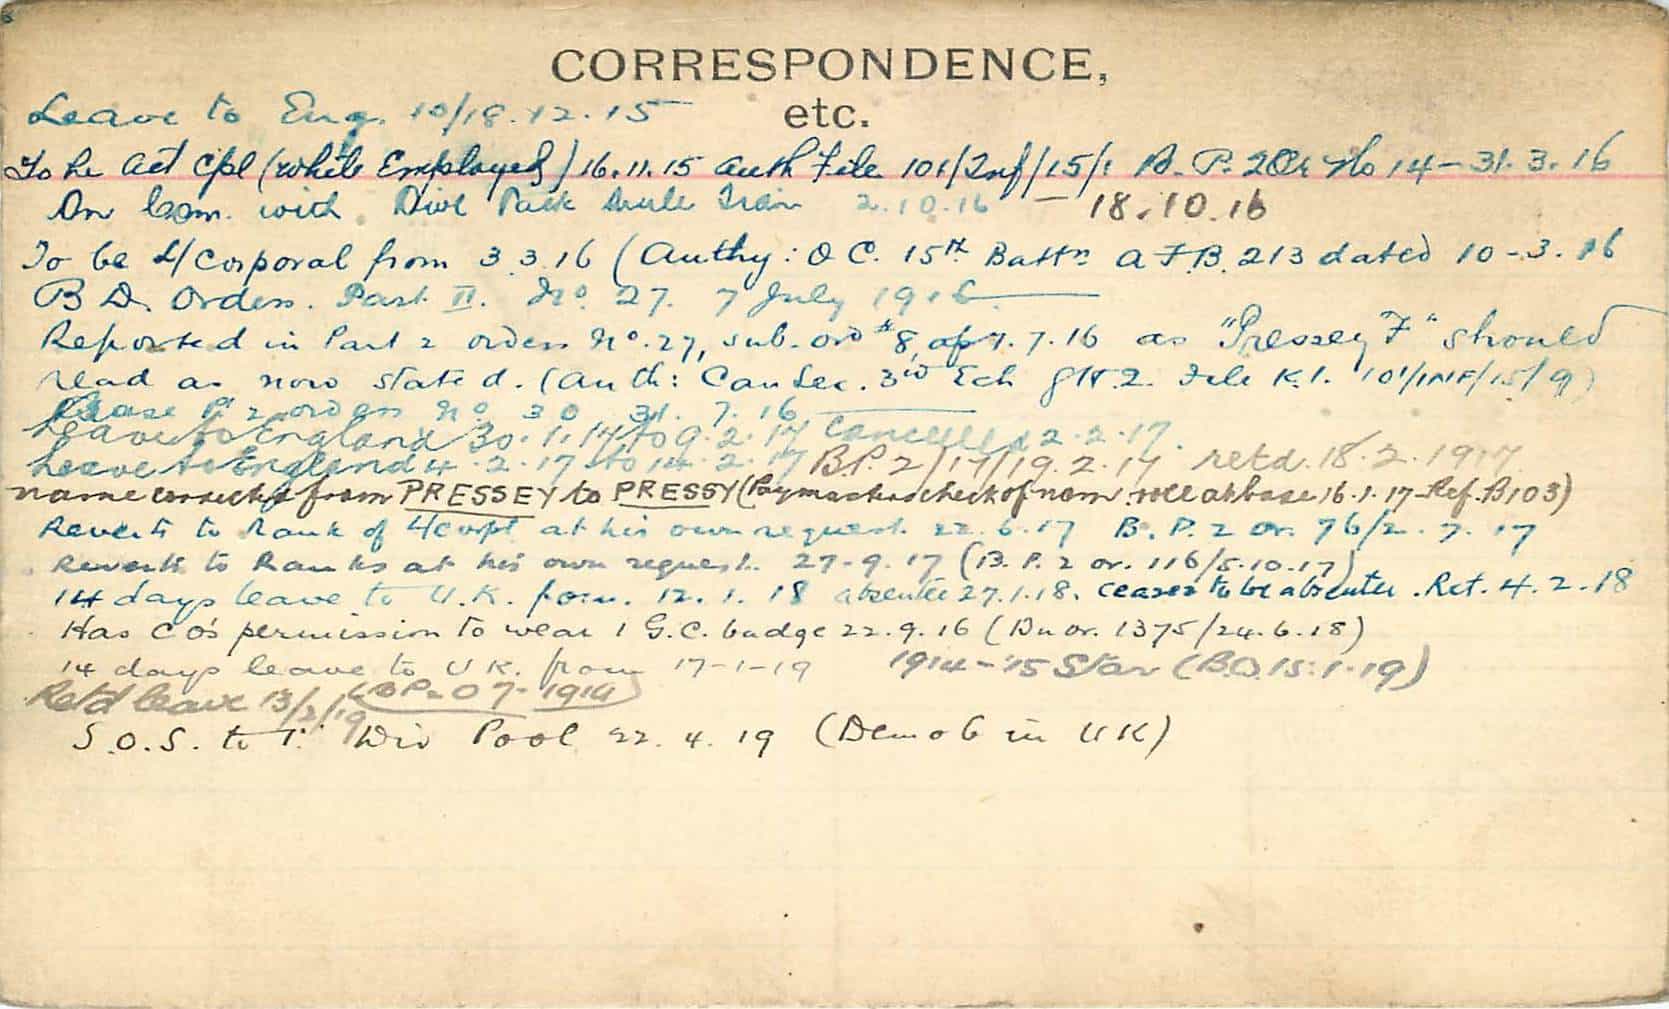 CORRESPONDENCE,
etc.
Leave to Eng. 10/18.12.15
To be Act Cpl (while Employed) 16.11.15 Auth File 101/Inf/15/1 B.P. 2 Or No 14 - 31.3.16
On Com. with Divl Pack Mule Train 2.10.16 - 18.10.16
To be L/Corporal from 3.3.16 (Authy: O C. 15th Battn A F B. 213 dated 10-3.16
B D. Orders. Part II. No. 27. 7 July 1916
Reported in Part 2 orders No. 27, sub. ord #8, of 7.7.16 as "Pressey F" should
read as now stated. (Auth: Can Sec. 3rd Ech GHQ. File K.1. 101/INF/15/9)
Pt 2 orders No 30 31.7.16
Leave to England 30.1.17 to 9.2.17 cancelled 2.2.17.
Leave to England 4.2.17 to 14.2.17 B.P. 2/17/19.2.17 retd. 18.2.1917
name corrected from PRESSEY to PRESSY (Paymasters check of nom. roll at base 16.1.17 - Ref. B103)
Reverts to Rank of L/Corpl at his own request. 22.6.17 B.P. 2 or. 76/2.7.17
Reverts to Ranks at his own request. 27-9.17 (B.P. 2 or. 116/5.10.17)
14 days leave to U.K. from. 12.1.18 absentee 27.1.18. ceases to be absentee. Ret. 4.2.18
Has C O's permission to wear 1 G.C. badge 22.9.16 (Bn or. 1375/24.6.18)
14 days leave to U K. from 17-1-19 1914-'15 Star (B.O. 15.1.19)
Ret'd leave 13/2/19 (BP 2 O 7-1919)
S.O.S. to 1 Div Pool 22.4.19 (Demob in UK)